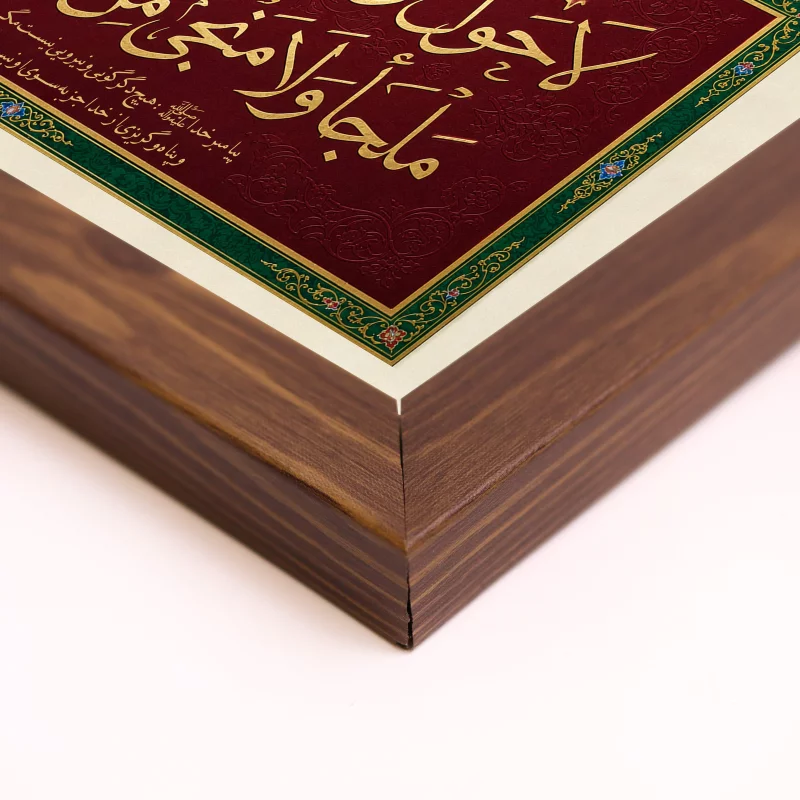 لَا حَول
مَلْجَأَ وَلَا مَنْجَىٰ مِنَ
پیامبر خدا ﷺ: هیچ دگرگونی و نیرویی نیست مگر
و پناه و گریزی از خدا جز به سوی او نیست